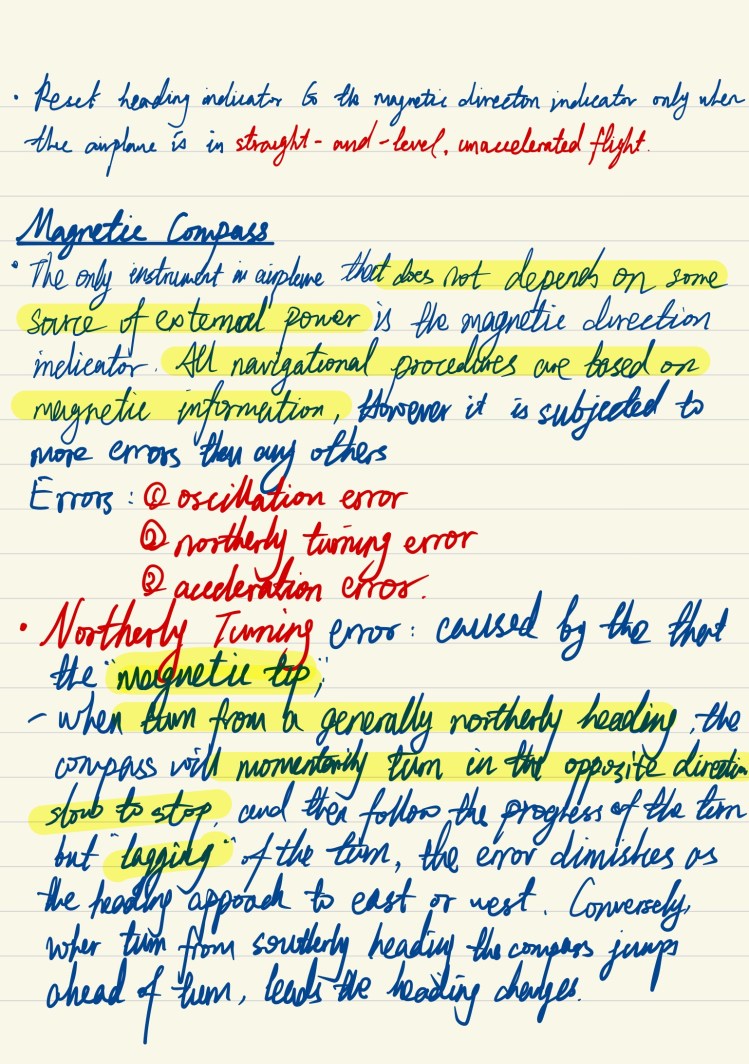 · Reset heading indicator to the magnetic direction indicator only when
the airplane is in straight-and-level, unaccelerated flight.
Magnetic Compass
· The only instrument in airplane that does not depends on some
source of external power is the magnetic direction
indicator. All navigational procedures are based on
magnetic information, However it is subjected to
more errors than any others
Errors: ① oscillation error
② northerly turning error
③ acceleration error.
· Northerly Turning error: caused by the that
the "magnetic tip;"
- when turn from a generally northerly heading, the
compass will momentarily turn in the opposite direction
slow to stop, and then follow the progress of the turn
but "lagging" of the turn, the error dimishes as
the heading appoach to east or west. Conversely,
when turn from southerly heading the compass jumps
ahead of turn, leads the heading changes.